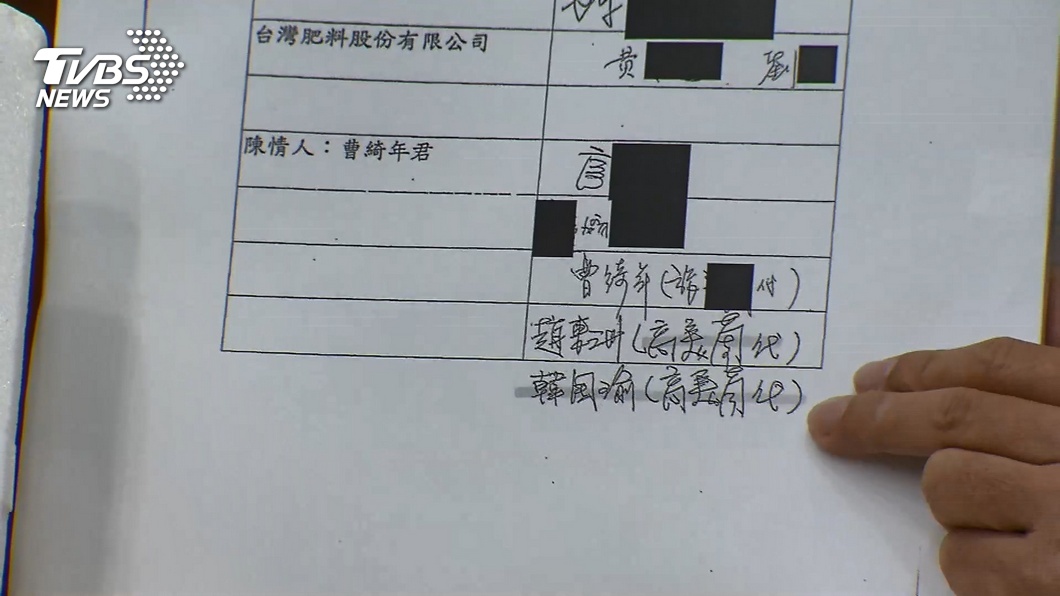 TVBS
NEWS
台灣肥料股份有限公司
黄 劉
陳情人：曹綺年君
高
曹綺年( 代)
趙 (高美蘭代)
韓國瑜(高美蘭代)